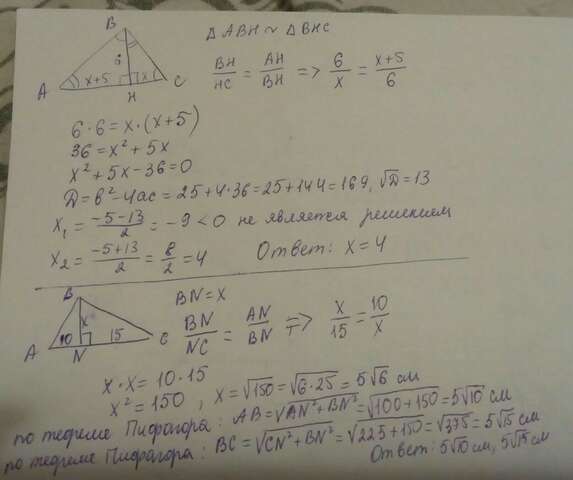 △ABH ~ △BHC
B
6
A x+5 H x C
BH/HC = AH/BH => 6/x = x+5/6
6·6=x·(x+5)
36=x²+5x
x²+5x-36=0
D=b²-4ac=25+4·36=25+144=169, √D=13
x₁=-5-13/2=-9<0 не является решением
x₂=-5+13/2=8/2=4 Ответ: x=4
B
x
10 15
A N C
BN=x
BN/NC = AN/BN => x/15 = 10/x
x·x=10·15
x²=150, x=√150=√6·25=5√6 см
по теореме Пифагора: AB=√AN²+BN²=√100+150=5√10 см
по теореме Пифагора: BC=√CN²+BN²=√225+150=√375=5√15 см
Ответ: 5√10 см, 5√15 см